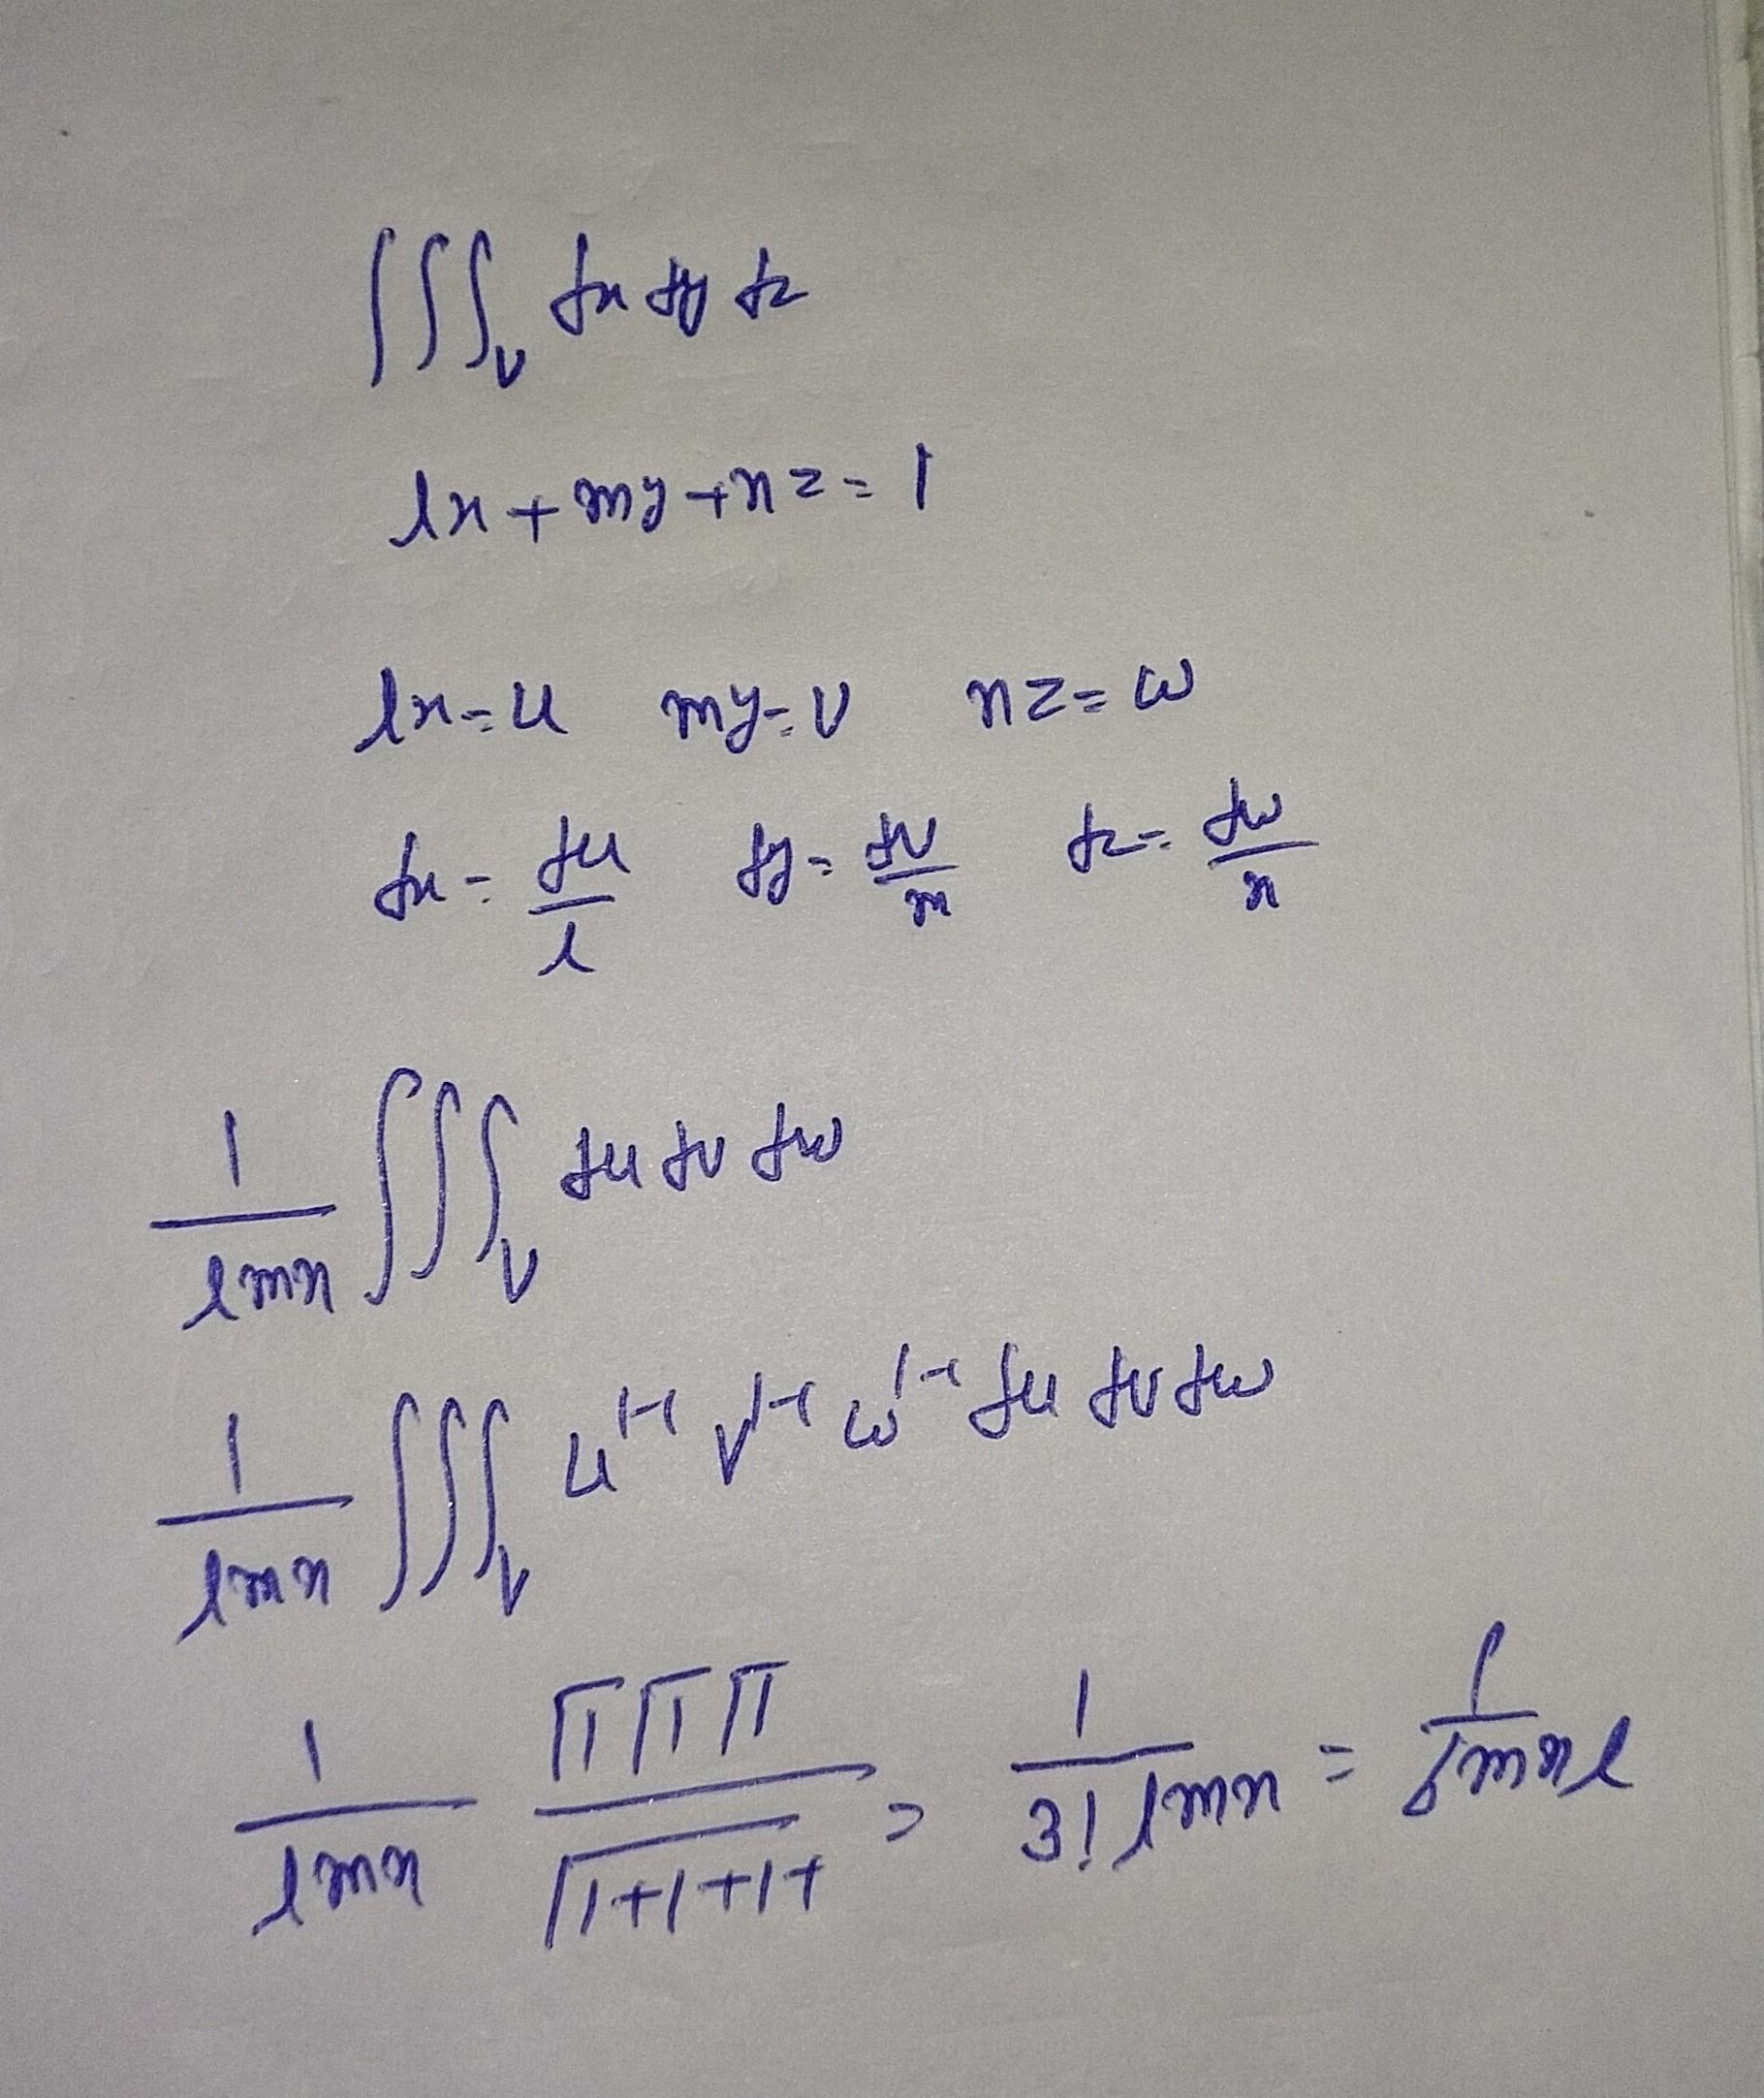 ∫∫∫_V dx dy dz
lx + my + nz = 1
lx = u my = v nz = w
dx = du/l dy = dv/m dz = dw/n
1/lmn ∫∫∫_V du dv dw
1/lmn ∫∫∫_V u^(1-1) v^(1-1) w^(1-1) du dv dw
1/lmn (Γ1 Γ1 Γ1)/(Γ1+1+1+) = 1/(3! lmn) = 1/(6mnl)